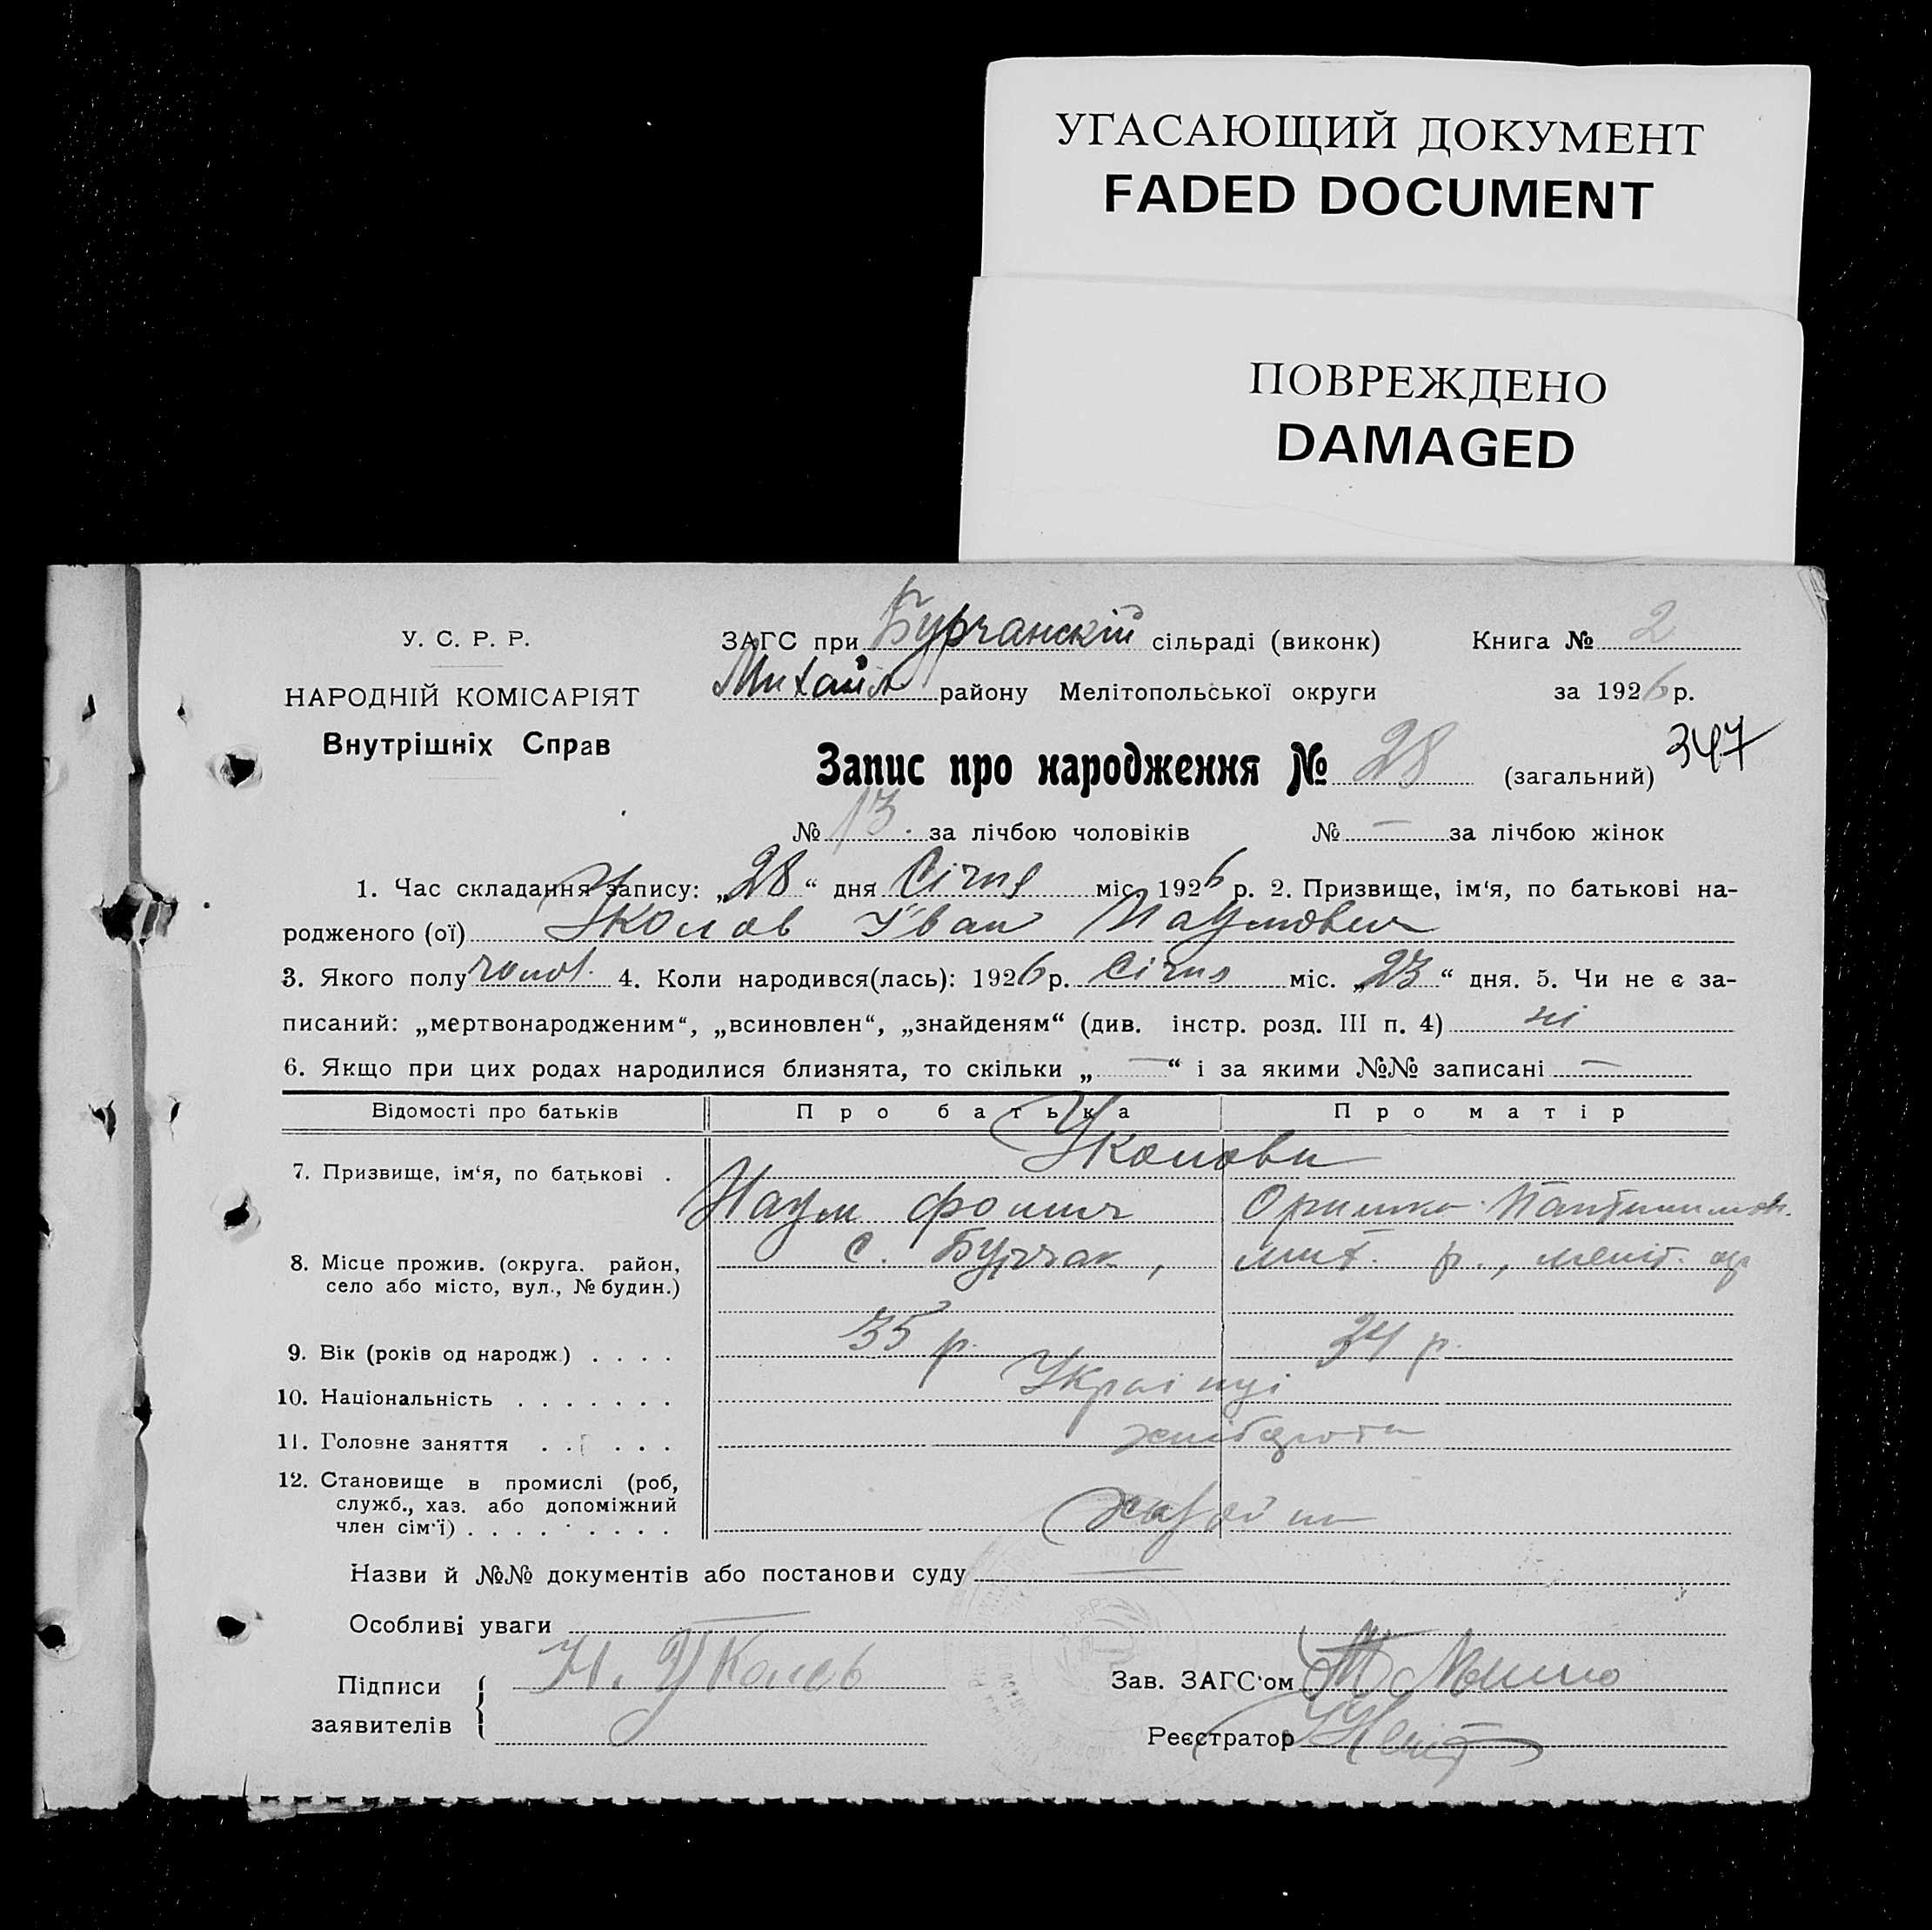 УГАСАЮЩИЙ ДОКУМЕНТ
FADED DOCUMENT
ПОВРЕЖДЕНО
DAMAGED
У. С. Р. Р.
НАРОДНІЙ КОМІСАРІЯТ
Внутрішніх Справ
ЗАГС при Бурчанскій сільраді (виконк) Книга № 2
Михайл району Мелітопольської округи за 1926 р.
Запис про народження № 28 (загальний) 347
№ 13. за лічбою чоловіків № — за лічбою жінок
1. Час складання запису: „28“ дня Січня міс. 1926 р. 2. Призвище, ім‘я, по батькові на-
родженого (ої) Уколов Іван Наумович
3. Якого полу чолов. 4. Коли народився(лась): 1926 р. Січня міс. „23“ дня. 5. Чи не є за-
писаний: „мертвонародженим“, „всиновлен“, „знайденям“ (див. інстр. розд. III п. 4) ні
6. Якщо при цих родах народилися близнята, то скільки „—“ і за якими №№ записані —
Відомості про батьків Про батька Про матір
7. Призвище, ім‘я, по батькові . Уколови
Наум Фомич Оришка
8. Місце прожив. (округа. район, село або місто, вул., № будин.) с. Бурчак, мих. р., меліт. окр
9. Вік (років од народж.) . . . . 35 р. 34 р.
10. Національність . . . . . . . Українці
11. Головне заняття . . . . . . хлібороби
12. Становище в промислі (роб, служб., хаз. або допоміжний член сім‘ї) . . . . . . . . . хазяїни
Назви й №№ документів або постанови суду —
Особливі уваги —
Підписи заявителів { Н. Уколов
Зав. ЗАГС‘ом
Реєстратор